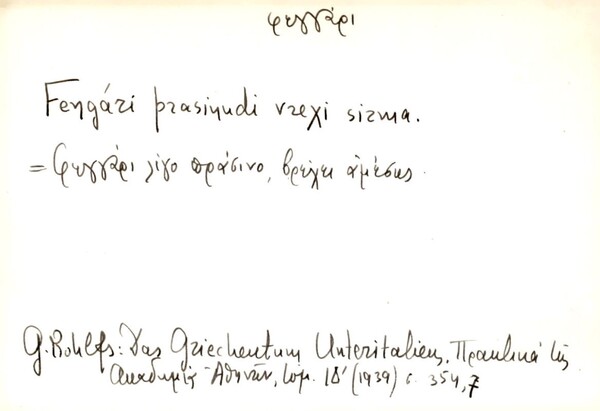 φεγγάρι
Feŋgári prasinudi vrexi sirma.
= Φεγγάρι λίγο πράσινο, βρέχει ἀμέσως.
G. Rohlfs: Das Griechentum Unteritaliens, Πρακτικά τῆς
Ἀκαδημίας Ἀθηνῶν, τόμ. ΙΔ' (1939) σ. 354,7